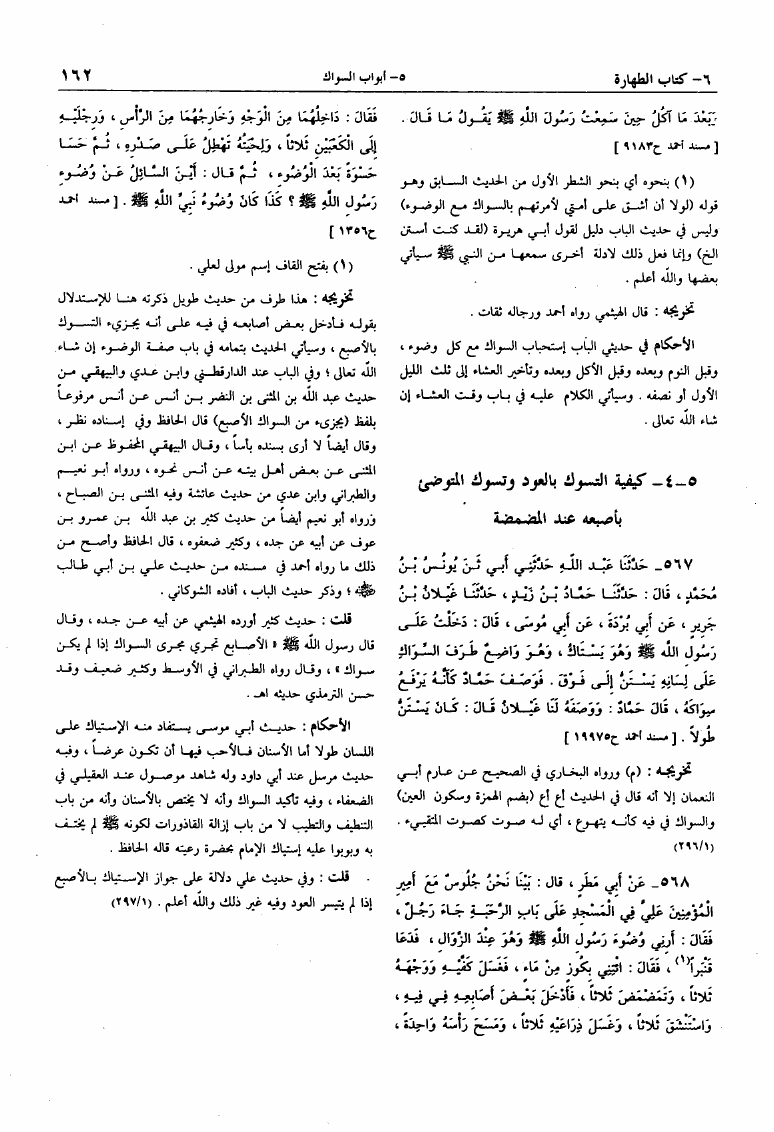 ٦- كتاب الطهارة
٥- أبواب السواك
١٦٢
وَبَعْدَ مَا آكُلُ حِينَ سَمِعْتُ رَسُولَ اللَّهِ ﷺ يَقُولُ مَا قَالَ .
[ مسند أحمد ح٩١٨٣ ]
(١) بنحوه أي بنحو الشطر الأول من الحديث السابق وهو
قوله (لولا أن أشق على أمتي لأمرتهم بالسواك مع الوضوء)
وليس في حديث الباب دليل لقول أبي هريرة (لقد كنت أستن
الخ) وإنما فعل ذلك لادلة أخرى سمعها من النبي ﷺ سيأتي
بعضها والله أعلم .
تخريجه : قال الهيثمي رواه أحمد ورجاله ثقات .
الأحكام في حديثي الباب إستحباب السواك مع كل وضوء ،
وقبل النوم وبعده وقبل الأكل وبعده وتأخير العشاء إلى ثلث الليل
الأول أو نصفه . وسيأتي الكلام عليه في باب وقت العشاء إن
شاء الله تعالى .
٥-٤- كيفية التسوك بالعود وتسوك المتوضئ
بأصبعه عند المضمضة
٥٦٧- حَدَّثَنَا عَبْد اللَّهِ حَدَّثَنِي أَبي ثَنَ يُونُسُ بْنُ
مُحَمَّدٍ ، قَالَ : حَدَّثَنَا حَمَّادُ بْنُ زَيْدٍ ، حَدَّثَنَا غَيْلانُ بْنُ
جَرِيرٍ ، عَن أَبي بُرْدَةَ ، عَن أَبي مُوسَى ، قَالَ : دَخَلْتُ عَلَى
رَسُولِ اللَّهِ ﷺ وَهُوَ يَسْتَاكُ ، وَهُوَ وَاضِعٌ طَرَفَ السِّوَاكِ
عَلَى لِسَانِهِ يَسْتَنُّ إِلَى فَوْقَ . فَوَصَفَ حَمَّادٌ كَأَنَّهُ يَرْفَعُ
سِوَاكَهُ ، قَالَ حَمَّادٌ : وَوَصَفَهُ لَنَا غَيْلانُ قَالَ : كَانَ يَسْتَنُّ
طُولاً . [ مسند أحمد ح١٩٩٧٥ ]
تخريجه : (م) ورواه البخاري في الصحيح عن عارم أبي
النعمان إلا أنه قال في الحديث أع أع (بضم الهمزة وسكون العين)
والسواك في فيه كأنه يتهوع ، أي له صوت كصوت المتقيء .
(٢٩٦/١)
٥٦٨- عَنْ أَبي مَطَرٍ ، قال : بَيْنَا نَحْنُ جُلُوسٌ مَعَ أَمِيرِ
الْمُؤْمِنِينَ عَلِيٍّ فِي الْمَسْجِدِ عَلَى بَابِ الرَّحَبَةِ جَاءَ رَجُلٌ ،
فَقَالَ : أَرِنِي وُضُوءَ رَسُولِ اللَّهِ ﷺ وَهُوَ عِنْدَ الزَّوَالِ ، فَدَعَا
قَنْبَراً(١) ، فَقَالَ : ائْتِنِي بِكُوزٍ مِنْ مَاءٍ ، فَغَسَلَ كَفَّيْهِ وَوَجْهَهُ
ثَلاثاً ، وَتَمَضْمَضَ ثَلاثاً ، فَأَدْخَلَ بَعْضَ أَصَابِعِهِ فِي فِيهِ ،
وَاسْتَنْشَقَ ثَلاثاً ، وَغَسَلَ ذِرَاعَيْهِ ثَلاثاً ، وَمَسَحَ رَأْسَهُ وَاحِدَةً ،
فَقَالَ : دَاخِلُهُمَا مِنَ الْوَجْهِ وَخَارِجُهُمَا مِنَ الرَّأْسِ ، وَرِجْلَيْهِ
إِلَى الْكَعْبَيْنِ ثَلاثاً ، وَلِحْيَتُهُ تَهْطِلُ عَلَى صَدْرِهِ ، ثُمَّ حَسَا
حَسْوَةً بَعْدَ الْوُضُوءِ ، ثُمَّ قال : أَيْنَ السَّائِلُ عَنْ وُضُوءِ
رَسُولِ اللَّهِ ﷺ ؟ كَذَا كَانَ وُضُوءُ نَبِيِّ اللَّهِ ﷺ . [ مسند احمد
ح١٣٥٦ ]
(١) بفتح القاف إسم مولى لعلي .
تخريجه : هذا طرف من حديث طويل ذكرته هنا للإستدلال
بقوله فأدخل بعض أصابعه في فيه على أنه يجزيء التسوك
بالأصبع ، وسيأتي الحديث بتمامه في باب صفة الوضوء إن شاء
الله تعالى ؛ وفي الباب عند الدارقطني وابن عدي والبيهقي من
حديث عبد الله بن المثنى بن النضر بن أنس عن أنس مرفوعاً
بلفظ (يجزىء من السواك الأصبع) قال الحافظ وفي إسناده نظر ،
وقال أيضاً لا أرى بسنده بأساً ، وقال البيهقي المحفوظ عن ابن
المثنى عن بعض أهل بيته عن أنس نحوه ، ورواه أبو نعيم
والطبراني وابن عدي من حديث عائشة وفيه المثنى بن الصباح ،
ورواه أبو نعيم أيضاً من حديث كثير بن عبد الله بن عمرو بن
عوف عن أبيه عن جده ، وكثير ضعفوه ، قال الحافظ وأصح من
ذلك ما رواه أحمد في مسنده من حديث علي بن أبي طالب
﵁ ؛ وذكر حديث الباب ، أفاده الشوكاني .
قلت : حديث كثير أورده الهيثمي عن أبيه عن جده ، وقال
قال رسول الله ﷺ « الأصابع تجري مجرى السواك إذا لم يكن
سواك » ، وقال رواه الطبراني في الأوسط وكثير ضعيف وقد
حسن الترمذي حديثه اهـ .
الأحكام : حديث أبي موسى يستفاد منه الإستياك على
اللسان طولا أما الأسنان فالأحب فيها أن تكون عرضاً ، وفيه
حديث مرسل عند أبي داود وله شاهد موصول عند العقيلي في
الضعفاء ، وفيه تأكيد السواك وأنه لا يختص بالأسنان وأنه من باب
التنظيف والتطيب لا من باب إزالة القاذورات لكونه ﷺ لم يختف
به وبوبوا عليه إستياك الإمام بحضرة رعيته قاله الحافظ .
قلت : وفي حديث علي دلالة على جواز الإستياك بالأصبع
إذا لم يتيسر العود وفيه غير ذلك والله أعلم . (٢٩٧/١)